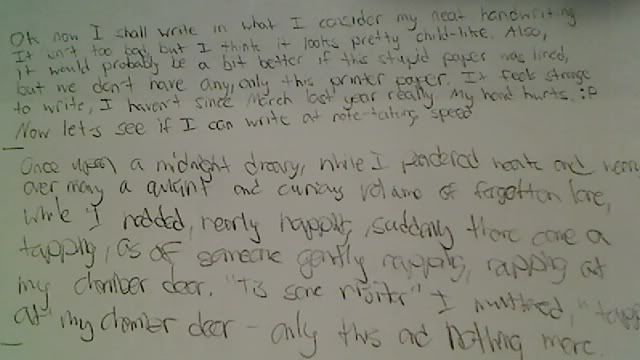 Ok now I shall write in what I consider my neat handwriting
It isn't too bad, but I think it looks pretty child-like. Also,
it would probably be a bit better if this stupid paper was lined,
but we don't have any, only this printer paper. It feels strange
to write, I haven't since March last year really. My hand hurts. :P
Now let's see if I can write at note-taking speed
Once upon a midnight dreary, while I pondered weak and
over many a quaint and curious volume of forgotten lore,
while I nodded, nearly napping, suddenly there came a
tapping, as of someone gently rapping, rapping at
my chamber door. "Tis some visitor" I muttered, "tapping
at my chamber door - only this and nothing more.